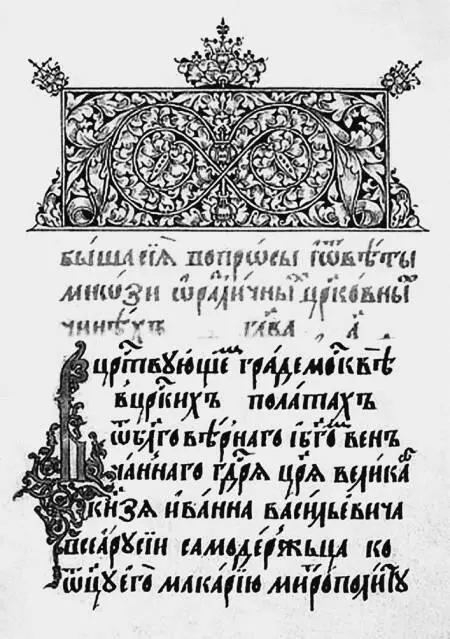 быша сиѧ вопрѡсы іѿвѣты
мнѡзи ѡразличныⷯ црⷪковныⷯ
чинѣхъ глаⷡва а҃
Вцрⷭтвующеⷨ граде москⷡвѣ
вцрⷭкихъ полатах
ѿблгⷪвѣрнаго ібгⷪоⷨ вен
чаннаго гдⷭрѧ црѧ̀ великаⷢ
кнѧзѧ иванна васильевича
всеа русіи самодержьца ко
ѿцу егⷪ макарію митрополиту